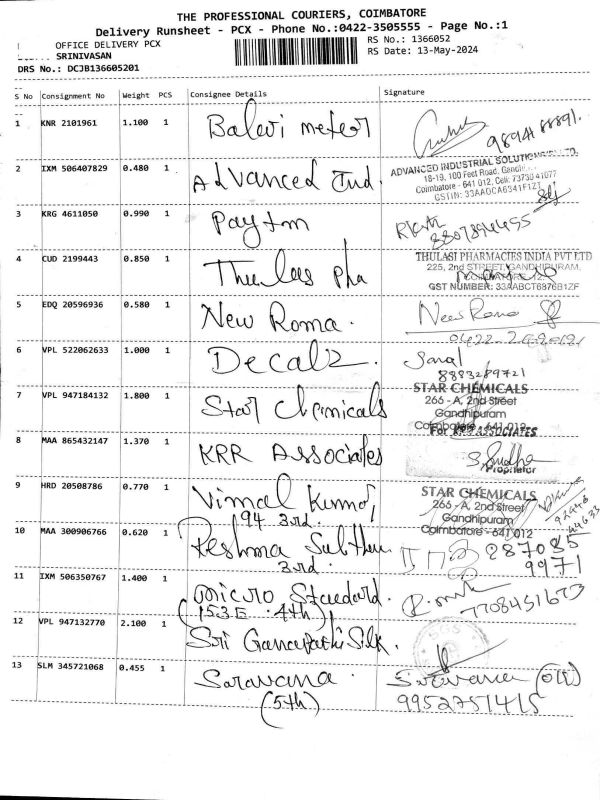 THE PROFESSIONAL COURIERS, COIMBATORE
Delivery Runsheet - PCX - Phone No.:0422-3505555 - Page No.:1
OFFICE DELIVERY PCX
SRINIVASAN
DRS No.: DCJB136605201
RS No.: 1366052
RS Date: 13-May-2024
S No Consignment No Weight PCS Consignee Details Signature
1 KNR 2101961 1.100 1 Balavi meter
98941 88891.
2 IXM 506407829 0.480 1 Advanced Ind.
ADVANCED INDUSTRIAL SOLUTIONS
18-19, 100 Feet Road,
Coimbatore - 641 012, Cell: 73730 41077
GSTIN: 33AAOCA6341F1Z1
3 KRG 4611050 0.990 1 Paytm
8807894455
4 CUD 2199443 0.850 1 Thulas Pha
THULASI PHARMACIES INDIA PVT LTD
225, 2nd STREET, GANDHIPURAM,
GST NUMBER: 33AABCT6876B1ZF
5 EDQ 20596936 0.580 1 New Roma.
New Roma
6 VPL 522062633 1.000 1 Decalz.
8883289721
7 VPL 947184132 1.800 1 Star Chemicals
STAR CHEMICALS
266 - A, 2nd Street
Gandhipuram
Coimbatore - 641 012
8 MAA 865432147 1.370 1 KRR Associates
For KRR ASSOCIATES
S. Sudha
Proprietor
9 HRD 20508786 0.770 1 Vimal Kumar,
94 3rd.
STAR CHEMICALS
266 - A, 2nd Street
Gandhipuram
Coimbatore - 641 012
10 MAA 300906766 0.620 1 Reshma
3rd.
287035
9971
11 IXM 506350767 1.400 1 micro Standard.
(153E 4th)
7708451673
12 VPL 947132770 2.100 1 Sri Ganapathi Silk.
13 SLM 345721068 0.455 1 Saravana.
(5th)
9952751415